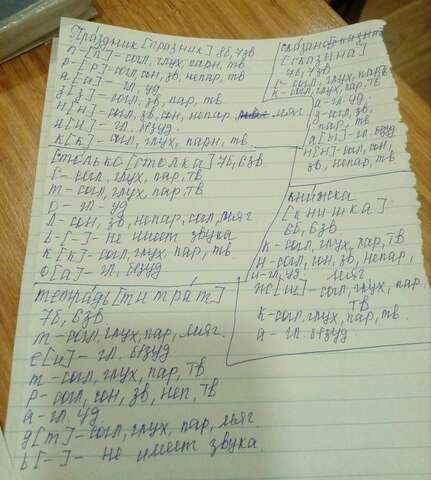 Праздник [празник] 8б, 7зв
п-[п]-согл, глух, парн, тв
р-[р]-согл, сон, зв, непар, тв
а-[а]-гл. уд
з-[з]-согл. зв, пар, тв.
н-[н]-согл, зв, сон, непар мяг
и-[и]-гл. безуд.
к-[к]-согл, глух, парн, тв
столько [столка] 7б, 6зв
с-согл, глух, пар, тв
т-согл, глух, пар, тв
о-гл-уд
л-сон, зв, непар, согл, мяг
ь-[-]-не имеет звука
к-[к]-согл, глух, пар, тв.
о-[а]-гл, безуд
тетрадь [титрат]
7б, 6зв
т-согл, глух, пар, мяг.
е-[и]-гл. безуд.
т-согл, глух, пар, тв
р-согл, сон, зв, неп, тв
а-гл. уд
д-[т]-согл, глух, пар, мяг
ь-[-]-не имеет звука.
[сказина]
7б, 7зв
с-согл, глух, пар, тв
к-согл, глух, пар, тв
а-гл. уд.
з-согл, зв,
пар, тв.
н-[н]-согл, сон,
зв, непар, тв
книжка
[книшка]
6б, 6зв
к-согл, глух, пар, тв
н-согл, сон, зв, непар,
и-гл, уд, мяг
ж-[ш]-согл, глух, пар,
тв
к-согл, глух, пар, тв.
а-гл. безуд.